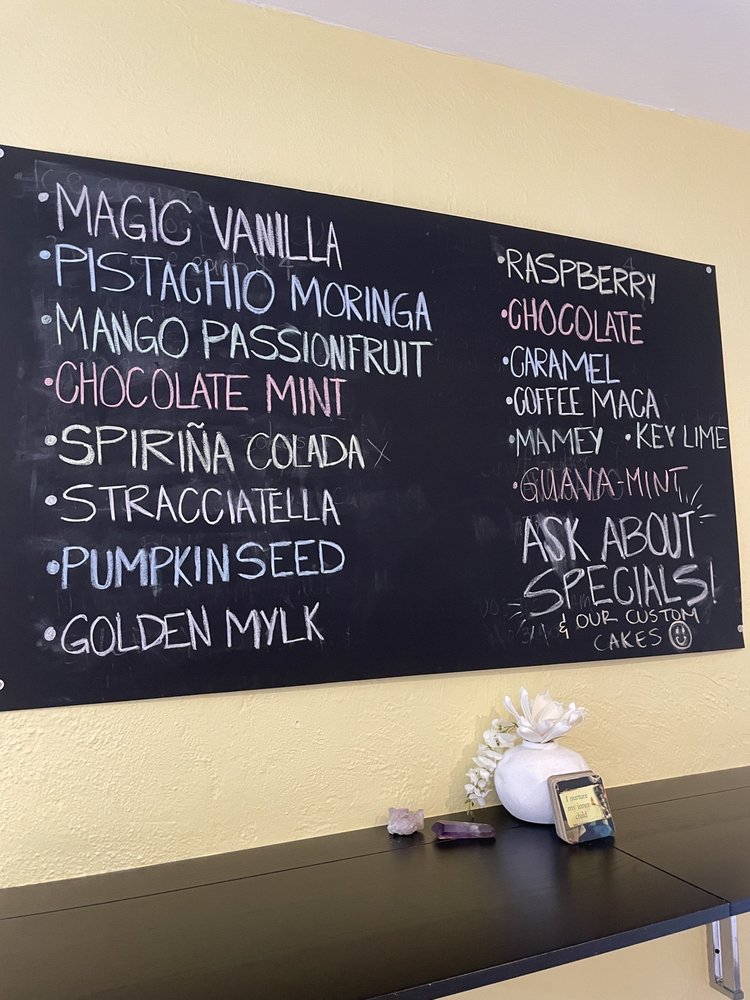 • MAGIC VANILLA
• PISTACHIO MORINGA
• MANGO PASSIONFRUIT
• CHOCOLATE MINT
• SPIRIÑA COLADA x
• STRACCIATELLA
• PUMPKINSEED
• GOLDEN MYLK
• RASPBERRY
• CHOCOLATE
• CARAMEL
• COFFEE MACA
• MAMEY • KEY LIME
• GUAVA-MINT
ASK ABOUT
SPECIALS!
& OUR CUSTOM
CAKES
I nurture
my inner
child